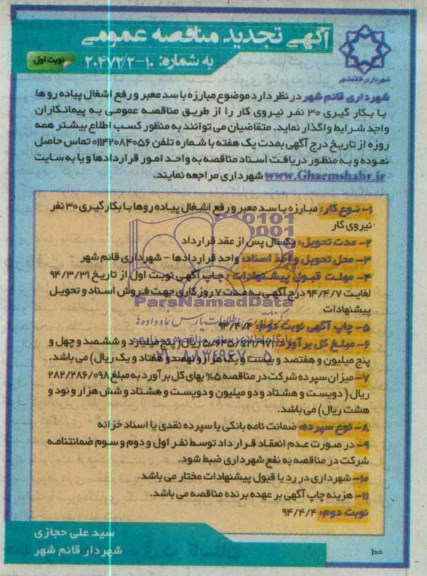 آگهی تجدید مناقصه عمومی
به شماره: ۱۰-۲۰۴۷۲/۲
نوبت اول
شهرداری قائم شهر
شهرداری قائم شهر در نظر دارد موضوع مبارزه با سد معبر و رفع اشغال پیاده رو ها
با بکار گیری ۳۰ نفر نیروی کار را از طریق مناقصه عمومی به پیمانکاران
واجد شرایط واگذار نماید. متقاضیان می توانند به منظور کسب اطلاع بیشتر همه
روزه از تاریخ درج آگهی بمدت یک هفته با شماره تلفن ۰۱۱۴۲۰۸۴۰۵۶ تماس حاصل
نموده و به منظور دریافت اسناد مناقصه به واحد امور قراردادها و یا به سایت
www.Ghaemshahr.ir شهرداری مراجعه نمایند.
۱- نوع کار: مبارزه با سد معبر و رفع اشغال پیاده روها با بکارگیری ۳۰ نفر
نیروی کار
۲- مدت تحویل: یکسال پس از عقد قرارداد
۳- محل تحویل و اخذ اسناد: واحد قراردادها - شهرداری قائم شهر
۴- مهلت قبول پیشنهادات: چاپ آگهی نوبت اول از تاریخ ۹۴/۳/۳۱
لغایت ۹۴/۴/۷ درج آگهی به مدت ۷ روز کاری جهت فروش اسناد و تحویل
پیشنهادات
ParsNamadData
۵- چاپ آگهی نوبت دوم: ۹۴/۴/۴
۶- مبلغ کل برآورد: ۵/۶۴۵/۷۲۱/۹۷۱ ریال (پنج میلیارد و ششصد و چهل و
پنج میلیون و هفتصد و بیست و یک هزار و نهصد و هفتاد و یک ریال) می باشد.
۷- میزان سپرده شرکت در مناقصه ۵% بهای کل برآورد به مبلغ ۲۸۲/۲۸۶/۰۹۸
ریال ( دویست و هشتاد و دو میلیون و دویست و هشتاد و شش هزار و نود و
هشت ریال) می باشد.
۸- نوع سپرده: ضمانت نامه بانکی یا سپرده نقدی یا اسناد خزانه
۹- در صورت عدم انعقاد قرارداد توسط نفر اول و دوم و سوم ضمانتنامه
شرکت در مناقصه به نفع شهرداری ضبط شود.
۱۰- شهرداری در رد یا قبول پیشنهادات مختار می باشد.
۱۱- هزینه چاپ آگهی بر عهده برنده مناقصه می باشد.
نوبت دوم: ۹۴/۴/۴
سید علی حجازی
شهردار قائم شهر
۱۰۰